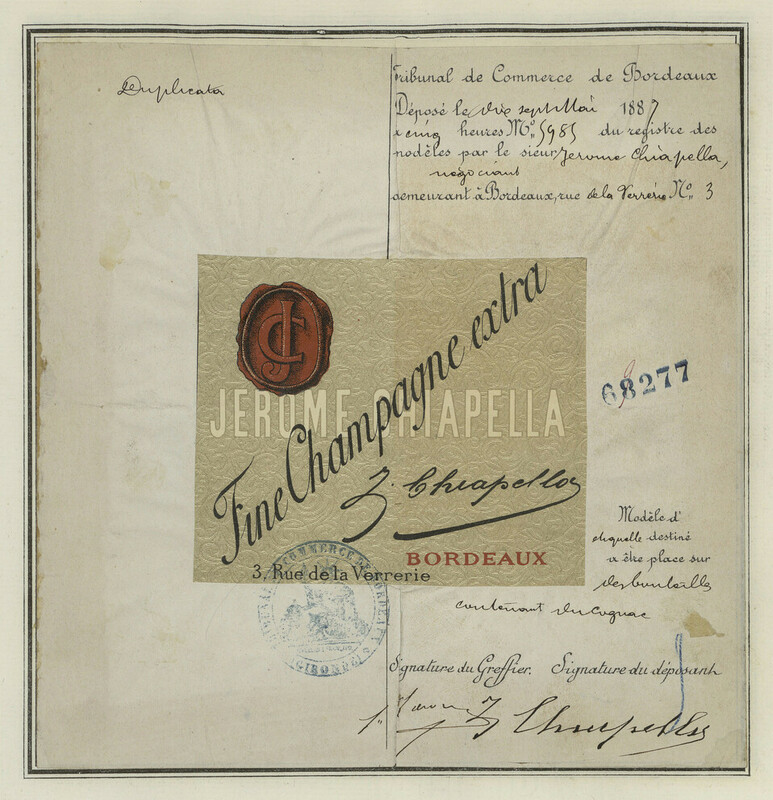 Duplicata
Tribunal de Commerce de Bordeaux
Déposé le dix sept Mai 1887
à cinq heures Nº 5985 du registre des
modèles par le sieur Jerome Chiapella,
négociant
demeurant à Bordeaux, rue de la Verrerie Nº 3
JC
Fine Champagne extra
JEROME CHIAPELLA
68277
9
J. Chiapella
BORDEAUX
3, Rue de la Verrerie
Modèle d'
etiquette destiné
a être place sur
des bouteilles
contenant du Cognac
COMMERCE DE BORDEAUX
(GIRONDE)
Signature du Greffier. Signature du déposant
J Chiapella